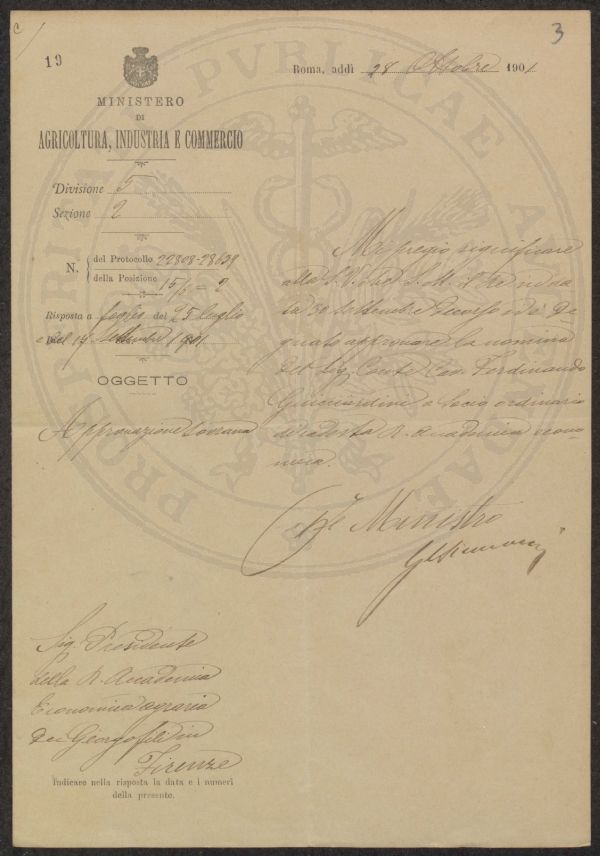 3
19
Roma, addì 28 Ottobre 1901
MINISTERO
DI
AGRICOLTURA, INDUSTRIA E COMMERCIO
Divisione 5
Sezione 2
N. del Protocollo 22808-28639
della Posizione 15
Risposta a foglio del 25 luglio
e del 14 Settembre 1901
OGGETTO
Approvazione sovrana
Mi pregio significare
alla S. V. che S. M. il Re in da
ta 30 Settembre decorso si è de
gnato approvare la nomina
del Sig. Conte Cav. Ferdinando
Guicciardini a Socio ordinario
di codesta R. Accademica econo-
mica.
Il Ministro
Sig. Presidente
della R. Accademia
Economica agraria
dei Georgofili in
Firenze
Indicare nella risposta la data e i numeri
della presente.
PROSPERITATI PVBLICAE AVGENDAE